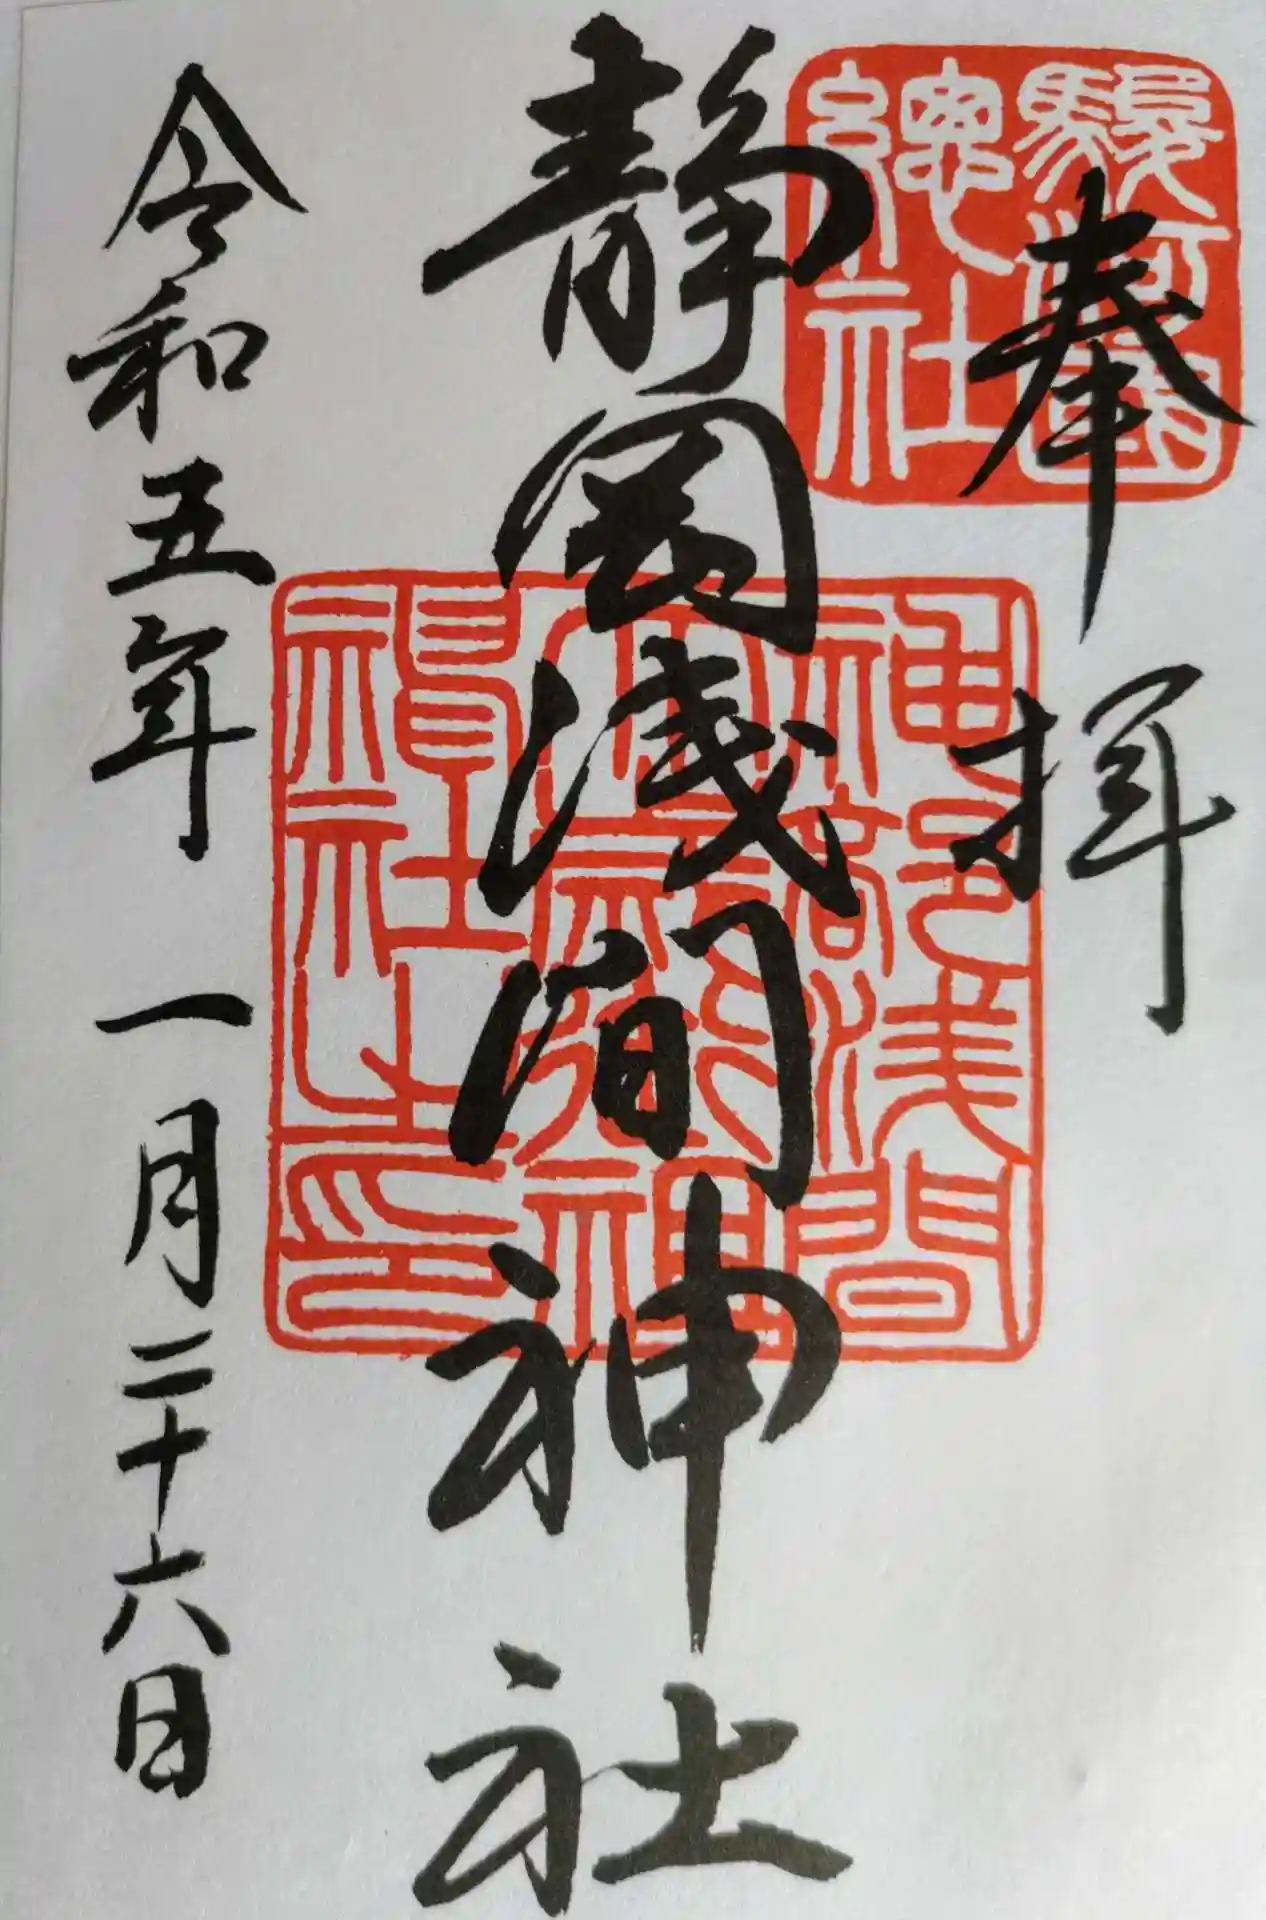 奉拝
駿河國
總社
静岡浅間神社
神部浅間
大歳御祖
神社之印
令和五年一月二十六日